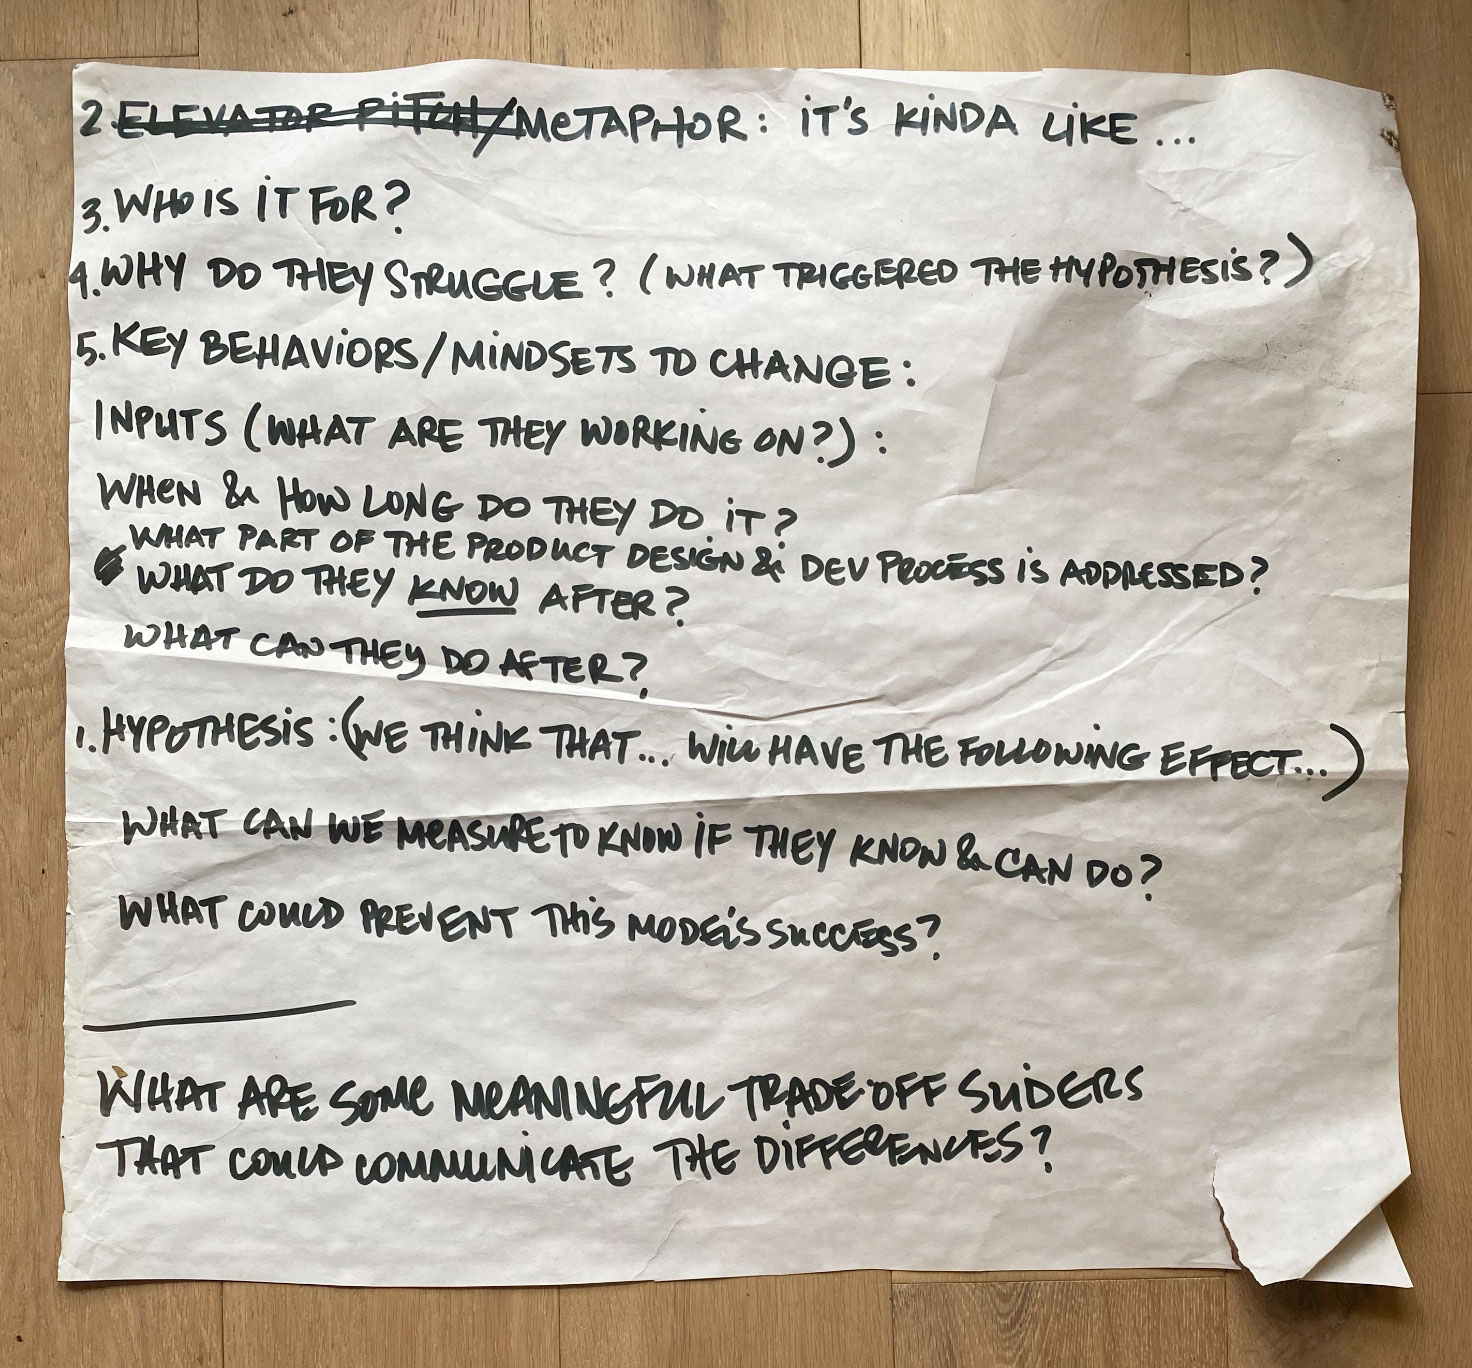 2. ELEVATOR PITCH/METAPHOR: IT'S KINDA LIKE ...
3. WHO IS IT FOR?
4. WHY DO THEY STRUGGLE? (WHAT TRIGGERED THE HYPOTHESIS?)
5. KEY BEHAVIORS/MINDSETS TO CHANGE:
INPUTS (WHAT ARE THEY WORKING ON?):
WHEN & HOW LONG DO THEY DO IT?
WHAT PART OF THE PRODUCT DESIGN & DEV PROCESS IS ADDRESSED?
WHAT DO THEY KNOW AFTER?
WHAT CAN THEY DO AFTER?
1. HYPOTHESIS: (WE THINK THAT... WILL HAVE THE FOLLOWING EFFECT...)
WHAT CAN WE MEASURE TO KNOW IF THEY KNOW & CAN DO?
WHAT COULD PREVENT THIS MODEL'S SUCCESS?
WHAT ARE SOME MEANINGFUL TRADE-OFF SLIDERS
THAT COULD COMMUNICATE THE DIFFERENCES?